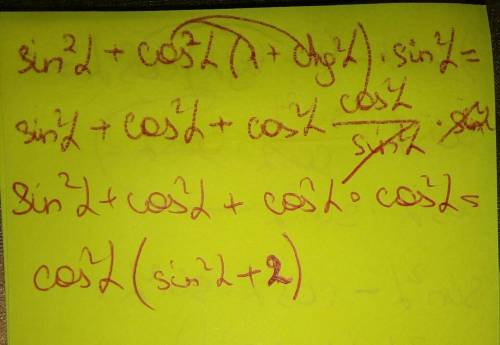 sin²α + cos²α (1 + ctg²α) · sin²α =
sin²α + cos²α + cos²α cos²α/sin²α · sin²α
sin²α + cos²α + cos²α · cos²α =
cos²α (sin²α + 2)